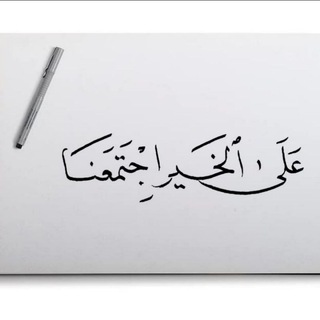 عَلَى ٱلخَير اِجْتَمَعنَا